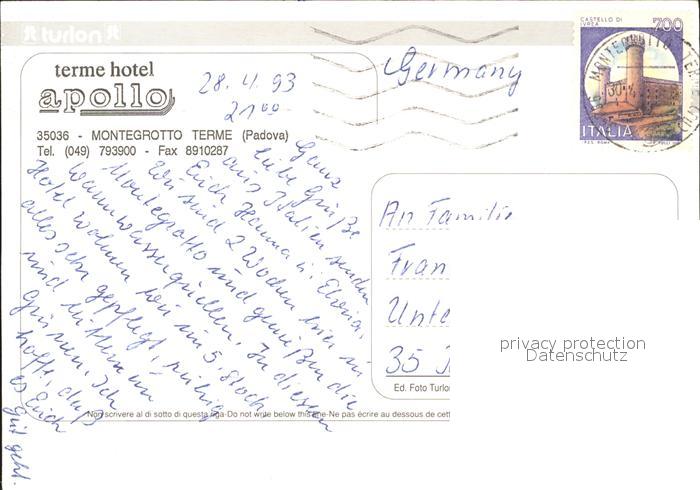 turlon
CASTELLO DI IVREA 700
ITALIA
MONTEGROTTO TERME
terme hotel
apollo
35036 - MONTEGROTTO TERME (Padova)
Tel. (049) 793900 - Fax 8910287
28. 4. 93
21 00
Germany
Ganz
liebe Grüße
aus Italien senden
Euch Hanna u.
Wir sind 2 Wochen hier in
Montegrotto und genießen die
Warmwasserquellen. In diesem
Hotel wohnen wir im 5. Stock
alles sehr gepflegt, ruhig
und mitten im
Grünen. Ich
hoffe, daß
es Euch
gut geht.
An Familie
Fran
Unte
35
privacy protection
Datenschutz
Ed. Foto Turlon
Non scrivere al di sotto di questa riga-Do not write below this line-Ne pas écrire au dessous de cett